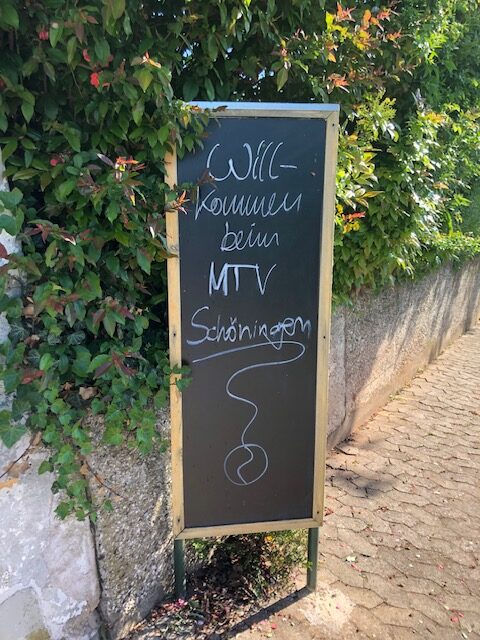 Will-
kommen
beim
MTV
Schöningen